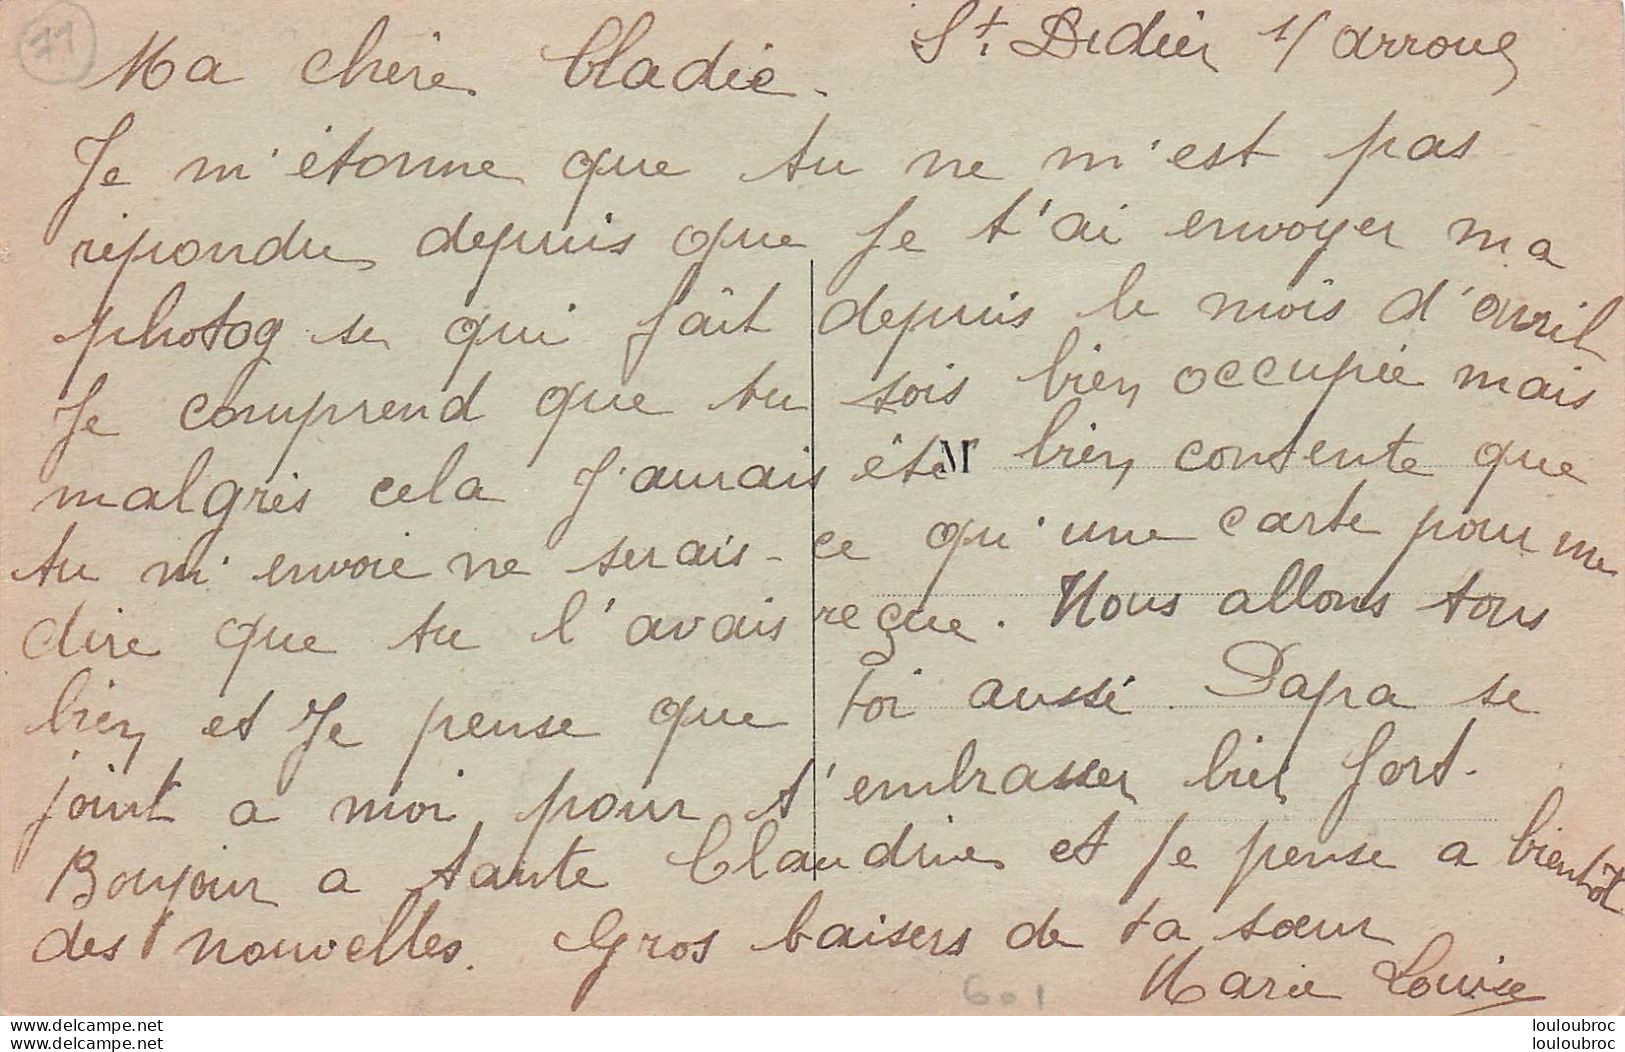 71
St Didier s/ arroux
Ma chère Cladie.
Je m'étonne que tu ne m'est pas
répondu depuis que Je t'ai envoyer ma
photog se qui fait depuis le mois d'avril
Je comprend que tu sois bien occupée mais
malgrés cela J'aurais été bien contente que
M
tu m'envoie ne serais-ce qu'une carte pour me
dire que tu l'avais reçue. Nous allons tous
bien et Je pense que toi aussi. Papa se
joint a moi pour t'embrasser bien fort.
Bonjour a tante Claudine et Je pense a bientôt
des nouvelles. Gros baisers de ta sœur
Marie Louise
601
www.delcampe.net
louloubroc
www.delcampe.net
louloubroc